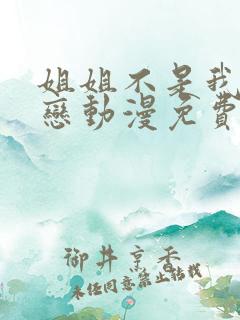 姐姐不是我
戀動漫免費
御井烹香
未经同意禁止转载